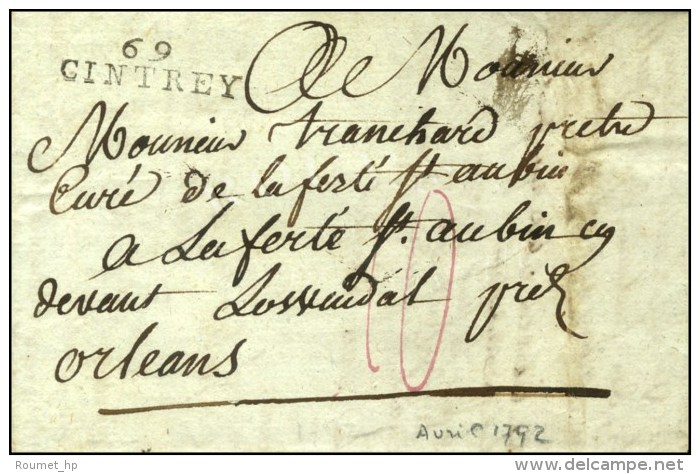 69
CINTREY
A Monsieur
Monsieur tranchard prêtre
Curé de la ferté St aubin
a La ferté St. aubin cy
devant Lowendal près
orleans
10
Avril 1792
© Roumet_hp
delcampe.net